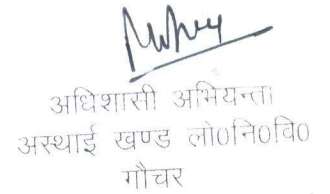 अधिशासी अभियन्ता
अस्थाई खण्ड लो०नि०वि०
गौचर